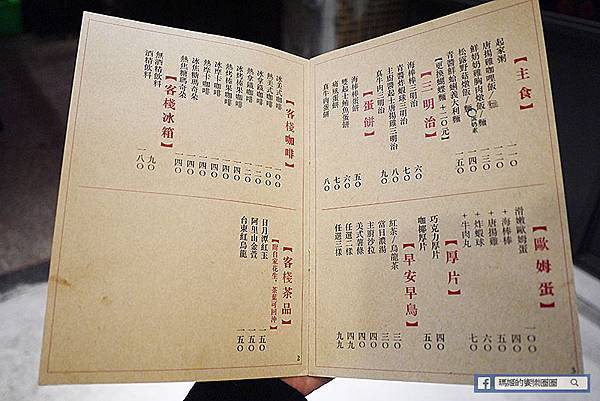 【主食】
起家粥 一〇〇
唐揚雞咖哩飯/麵 一二〇
鮮奶奶雞胸肉燉飯/麵 一三〇
松露野菇燉飯/麵 一四〇
青醬鮮蛤蜊義大利麵 一五〇
【更換蝴蝶麵+二〇元】
【三明治】
海棒棒三明治 六〇
青醬炸蝦球三明治 七〇
主廚醬起士唐揚雞三明治 八〇
真牛肉三明治 九〇
【蛋餅】
海棒棒蛋餅 五〇
雙起士鮪魚蛋餅 六〇
燒風蛋餅 七〇
真牛肉蛋餅 八〇
【歐姆蛋】
滑嫩歐姆蛋 一〇〇
+海棒棒 四〇
+唐揚雞 五〇
+炸蝦球 六〇
+牛肉丸 七〇
【厚片】
巧克力厚片 四〇
咖椰厚片 五〇
【早安早鳥】
紅茶/烏龍茶 三〇
當日濃湯 三〇
主廚沙拉 四〇
美式薯條 四〇
任選二樣 四九
任選三樣 九九
3
【客棧咖啡】
冰美式咖啡 一〇〇
熱美式咖啡 一〇〇
冰拿鐵咖啡 一二〇
熱拿鐵咖啡 一二〇
冰烤榛果咖啡 一四〇
熱烤榛果咖啡 一四〇
冰摩卡咖啡 一四〇
熱摩卡咖啡 一四〇
冰焦糖瑪奇朵 一四〇
熱焦糖瑪奇朵 一四〇
【客棧冰箱】
無酒精飲料 九〇
酒精飲料 一八〇
【客棧茶品】
【附自家花生,茶葉可回沖】
日月潭紅玉 一五〇
阿里山金萱 一五〇
台東紅烏龍 一五〇
2
瑪姬的食樂圈圈